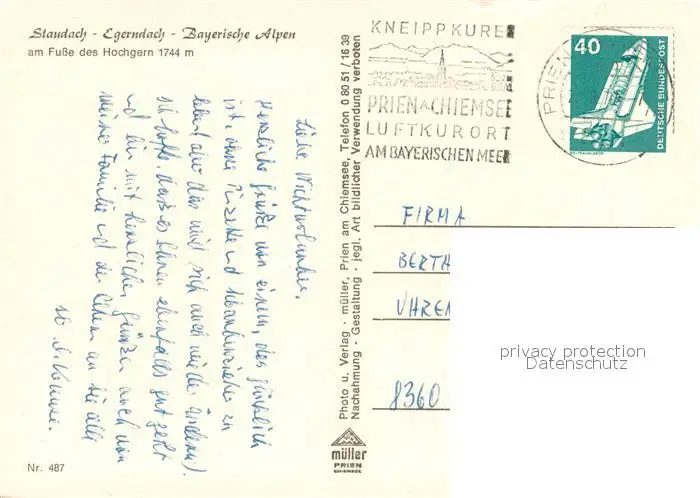 Staudach - Egerndach - Bayerische Alpen
am Fuße des Hochgern 1744 m
Liebe
herzliche Grüße von einem, der
ist, ohne Pinzette und Schraubenzieher zu
leben! aber das wird sich auch wieder ändern!
Ich hoffe, dass es Ihnen ebenfalls gut geht
und bin mit herzlichen Grüßen auch von
meiner Familie und der lieben an Sie alle
Ihr
Nr. 487
Photo u. Verlag · müller, Prien am Chiemsee, Telefon 0 80 51 / 16 39
Nachahmung · Gestaltung · jegl. Art bildlicher Verwendung verboten
müller
PRIEN
CHIEMSEE
KNEIPPKURE
PRIEN A CHIEMSEE
LUFTKURORT
AM BAYERISCHEN MEER
PRIEN
40
DEUTSCHE BUNDESPOST
WELTRAUMLABOR
FIRMA
BERTH
UHREN
8360
privacy protection
Datenschutz